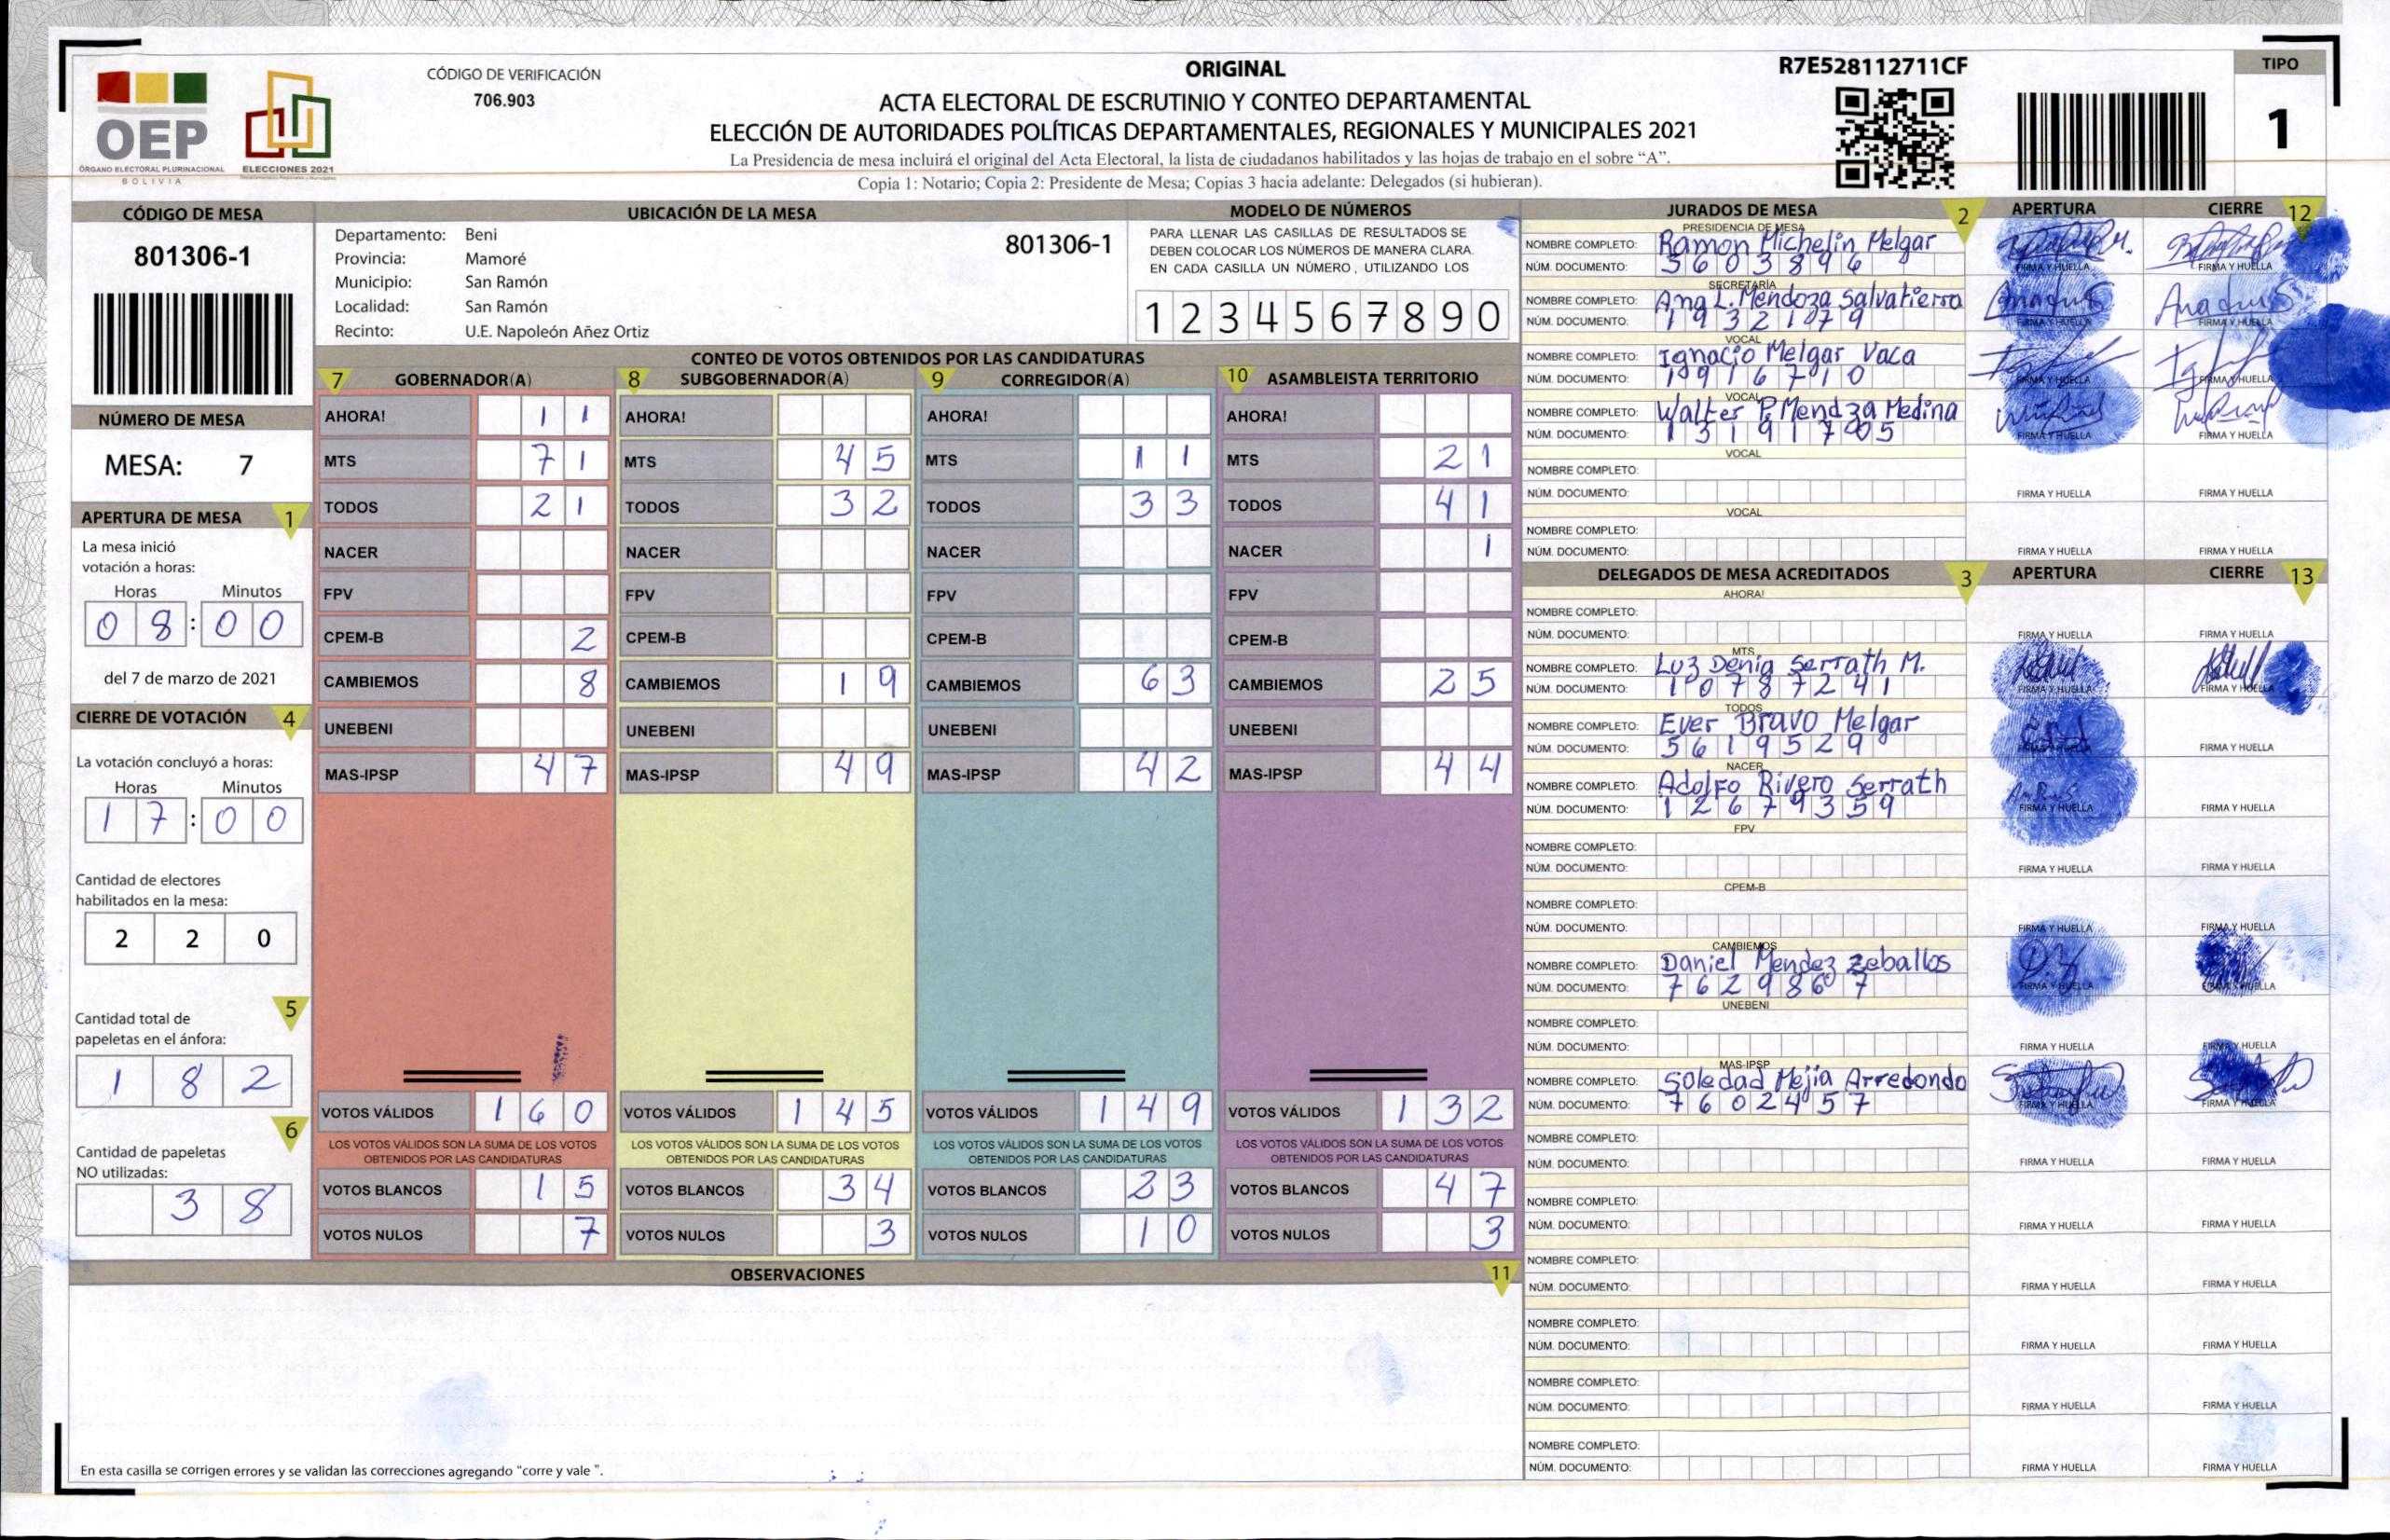 OEP
ÓRGANO ELECTORAL PLURINACIONAL
BOLIVIA
ELECCIONES 2021
CÓDIGO DE VERIFICACIÓN
706.903
ORIGINAL
ACTA ELECTORAL DE ESCRUTINIO Y CONTEO DEPARTAMENTAL
ELECCIÓN DE AUTORIDADES POLÍTICAS DEPARTAMENTALES, REGIONALES Y MUNICIPALES 2021
La Presidencia de mesa incluirá el original del Acta Electoral, la lista de ciudadanos habilitados y las hojas de trabajo en el sobre “A”.
Copia 1: Notario; Copia 2: Presidente de Mesa; Copias 3 hacia adelante: Delegados (si hubieran).
R7E528112711CF
TIPO
1
CÓDIGO DE MESA
801306-1
NÚMERO DE MESA
MESA: 7
APERTURA DE MESA 1
La mesa inició
votación a horas:
Horas Minutos
0 8 : 0 0
del 7 de marzo de 2021
CIERRE DE VOTACIÓN 4
La votación concluyó a horas:
Horas Minutos
1 7 : 0 0
Cantidad de electores
habilitados en la mesa:
2 2 0
5
Cantidad total de
papeletas en el ánfora:
1 8 2
6
Cantidad de papeletas
NO utilizadas:
3 8
UBICACIÓN DE LA MESA
Departamento: Beni 801306-1
Provincia: Mamoré
Municipio: San Ramón
Localidad: San Ramón
Recinto: U.E. Napoleón Añez Ortiz
MODELO DE NÚMEROS
PARA LLENAR LAS CASILLAS DE RESULTADOS SE
DEBEN COLOCAR LOS NÚMEROS DE MANERA CLARA.
EN CADA CASILLA UN NÚMERO, UTILIZANDO LOS
1 2 3 4 5 6 7 8 9 0
CONTEO DE VOTOS OBTENIDOS POR LAS CANDIDATURAS
7 GOBERNADOR(A) 8 SUBGOBERNADOR(A) 9 CORREGIDOR(A) 10 ASAMBLEISTA TERRITORIO
AHORA! 1 1 AHORA! AHORA! AHORA!
MTS 7 1 MTS 4 5 MTS 1 1 MTS 2 1
TODOS 2 1 TODOS 3 2 TODOS 3 3 TODOS 4 1
NACER NACER NACER NACER 1
FPV FPV FPV FPV
CPEM-B 2 CPEM-B CPEM-B CPEM-B
CAMBIEMOS 8 CAMBIEMOS 1 9 CAMBIEMOS 6 3 CAMBIEMOS 2 5
UNEBENI UNEBENI UNEBENI UNEBENI
MAS-IPSP 4 7 MAS-IPSP 4 9 MAS-IPSP 4 2 MAS-IPSP 4 4
VOTOS VÁLIDOS 1 6 0 VOTOS VÁLIDOS 1 4 5 VOTOS VÁLIDOS 1 4 9 VOTOS VÁLIDOS 1 3 2
LOS VOTOS VÁLIDOS SON LA SUMA DE LOS VOTOS LOS VOTOS VÁLIDOS SON LA SUMA DE LOS VOTOS LOS VOTOS VÁLIDOS SON LA SUMA DE LOS VOTOS LOS VOTOS VÁLIDOS SON LA SUMA DE LOS VOTOS
OBTENIDOS POR LAS CANDIDATURAS OBTENIDOS POR LAS CANDIDATURAS OBTENIDOS POR LAS CANDIDATURAS OBTENIDOS POR LAS CANDIDATURAS
VOTOS BLANCOS 1 5 VOTOS BLANCOS 3 4 VOTOS BLANCOS 2 3 VOTOS BLANCOS 4 7
VOTOS NULOS 7 VOTOS NULOS 3 VOTOS NULOS 1 0 VOTOS NULOS 3
OBSERVACIONES 11
En esta casilla se corrigen errores y se validan las correcciones agregando "corre y vale ".
JURADOS DE MESA 2 APERTURA CIERRE 12
PRESIDENCIA DE MESA
NOMBRE COMPLETO: Ramon Michelin Melgar
NÚM. DOCUMENTO: 5 6 0 3 8 9 6 FIRMA Y HUELLA FIRMA Y HUELLA
SECRETARÍA
NOMBRE COMPLETO: Ana L. Mendoza Salvatierra
NÚM. DOCUMENTO: 1 9 3 2 1 0 7 9 FIRMA Y HUELLA FIRMA Y HUELLA
VOCAL
NOMBRE COMPLETO: Ignacio Melgar Vaca
NÚM. DOCUMENTO: 1 9 1 6 7 1 0 FIRMA Y HUELLA FIRMA Y HUELLA
VOCAL
NOMBRE COMPLETO: Walter P. Mendza Medina
NÚM. DOCUMENTO: 1 3 1 9 1 7 0 5 FIRMA Y HUELLA FIRMA Y HUELLA
VOCAL
NOMBRE COMPLETO:
NÚM. DOCUMENTO: FIRMA Y HUELLA FIRMA Y HUELLA
VOCAL
NOMBRE COMPLETO:
NÚM. DOCUMENTO: FIRMA Y HUELLA FIRMA Y HUELLA
DELEGADOS DE MESA ACREDITADOS 3 APERTURA CIERRE 13
AHORA!
NOMBRE COMPLETO:
NÚM. DOCUMENTO: FIRMA Y HUELLA FIRMA Y HUELLA
MTS
NOMBRE COMPLETO: Luz Denia Serrath M.
NÚM. DOCUMENTO: 1 0 7 8 7 2 4 1 FIRMA Y HUELLA FIRMA Y HUELLA
TODOS
NOMBRE COMPLETO: Ever Bravo Melgar
NÚM. DOCUMENTO: 5 6 1 9 5 2 9 FIRMA Y HUELLA FIRMA Y HUELLA
NACER
NOMBRE COMPLETO: Adolfo Rivero Serrath
NÚM. DOCUMENTO: 1 2 6 7 9 3 5 9 FIRMA Y HUELLA FIRMA Y HUELLA
FPV
NOMBRE COMPLETO:
NÚM. DOCUMENTO: FIRMA Y HUELLA FIRMA Y HUELLA
CPEM-B
NOMBRE COMPLETO:
NÚM. DOCUMENTO: FIRMA Y HUELLA FIRMA Y HUELLA
CAMBIEMOS
NOMBRE COMPLETO: Daniel Mendez Zeballos
NÚM. DOCUMENTO: 7 6 2 9 8 6 7 FIRMA Y HUELLA FIRMA Y HUELLA
UNEBENI
NOMBRE COMPLETO:
NÚM. DOCUMENTO: FIRMA Y HUELLA FIRMA Y HUELLA
MAS-IPSP
NOMBRE COMPLETO: Soledad Mejia Arredondo
NÚM. DOCUMENTO: 7 6 0 2 4 5 7 FIRMA Y HUELLA FIRMA Y HUELLA
NOMBRE COMPLETO:
NÚM. DOCUMENTO: FIRMA Y HUELLA FIRMA Y HUELLA
NOMBRE COMPLETO:
NÚM. DOCUMENTO: FIRMA Y HUELLA FIRMA Y HUELLA
NOMBRE COMPLETO:
NÚM. DOCUMENTO: FIRMA Y HUELLA FIRMA Y HUELLA
NOMBRE COMPLETO:
NÚM. DOCUMENTO: FIRMA Y HUELLA FIRMA Y HUELLA
NOMBRE COMPLETO:
NÚM. DOCUMENTO: FIRMA Y HUELLA FIRMA Y HUELLA
NOMBRE COMPLETO:
NÚM. DOCUMENTO: FIRMA Y HUELLA FIRMA Y HUELLA